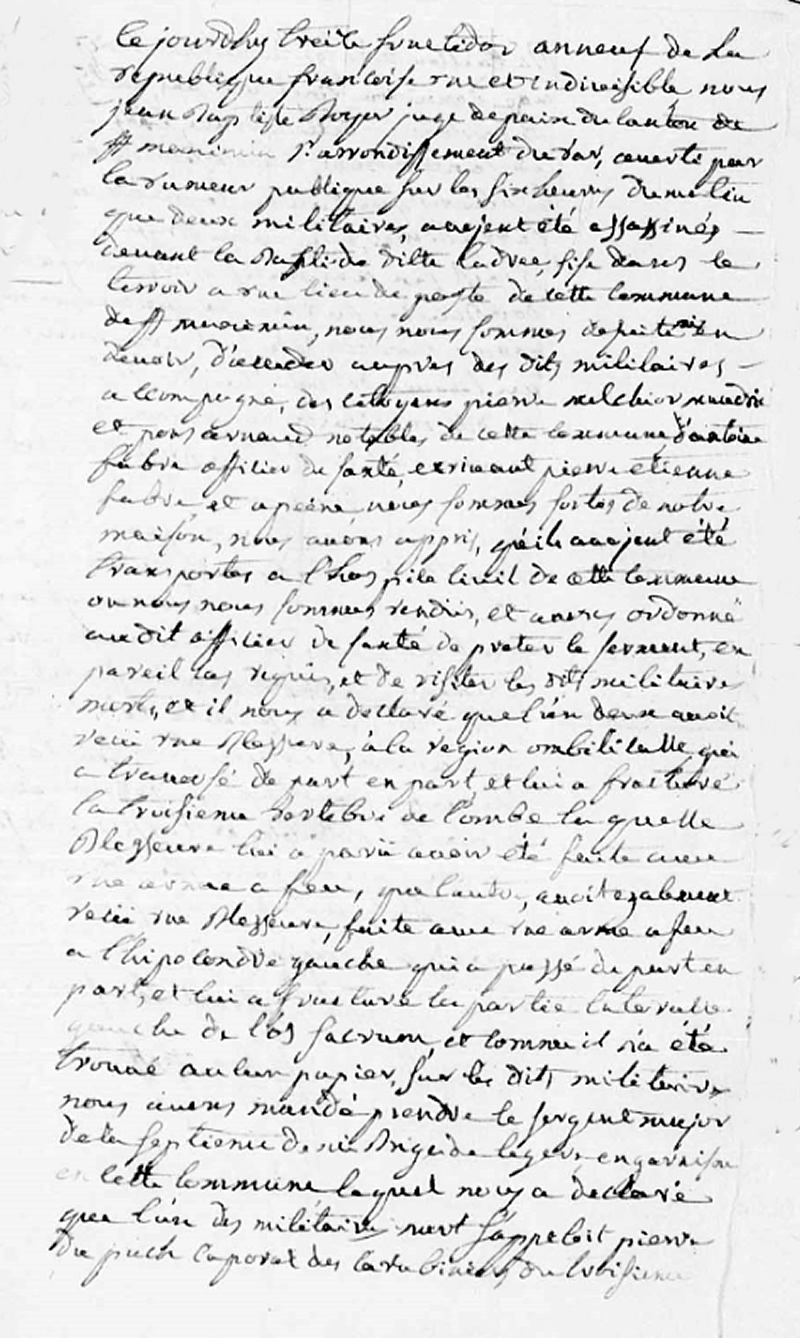 Ce jourdhuy treize fructidor an neuf de La
republique francoise une et indivisible nous
jean Baptiste Boyer juge de paix du canton de
st maximin 1er arrondissement du var, averti par
la rumeur publique sur les six heures du matin
que deux militaires avojent été assassinés —
devant la Bastide dilte Ladrec, sise dans le
terroir a une lieu de poste de cette commune
de st maximin, nous nous sommes de suite mis en
devoir, d'acceder aupres des dits militaires —
accompagné, des citoyens pierre melchior
et pons arnaud notables de cette commune d'antoine
fabre officier de santé, ecrivant pierre etienne
fabre, et a peine nous sommes sortis de notre
maison, nous avons appris, qu'ils avojent été
transportés a l'hospice civil de cette commune
ou nous nous sommes rendus, et avons ordonné
audit officier de santé de preter le serment, en
pareil cas requis, et de visiter les dits militaires
morts, et il nous a declaré que l'un deux avoit
recu une Blessure, à la region ombilicalle qui
a traversé de part en part, et lui a fracturé
la troisieme vertebre de lombe la quelle
Blessure lui a parü avoir été faite avec
une arme a feu, que l'autre, avoit egalement
recü une Blessure, faite avec une arme a feu
a l'hipocondre gauche qui a passé de part en
part, et lui a fracturé la partie lateralle
gauche de l'os sacrum, et comme il n'a été
trouvé aucun papier, sur les dits militaires
nous avons mandé prendre le sergent major
de la septieme demi Brigade legere, en garnison
en cette commune lequel nous a declaré
que l'un des militaires mort s'appeloit pierre
du puch caporal des carabiniers du troisieme